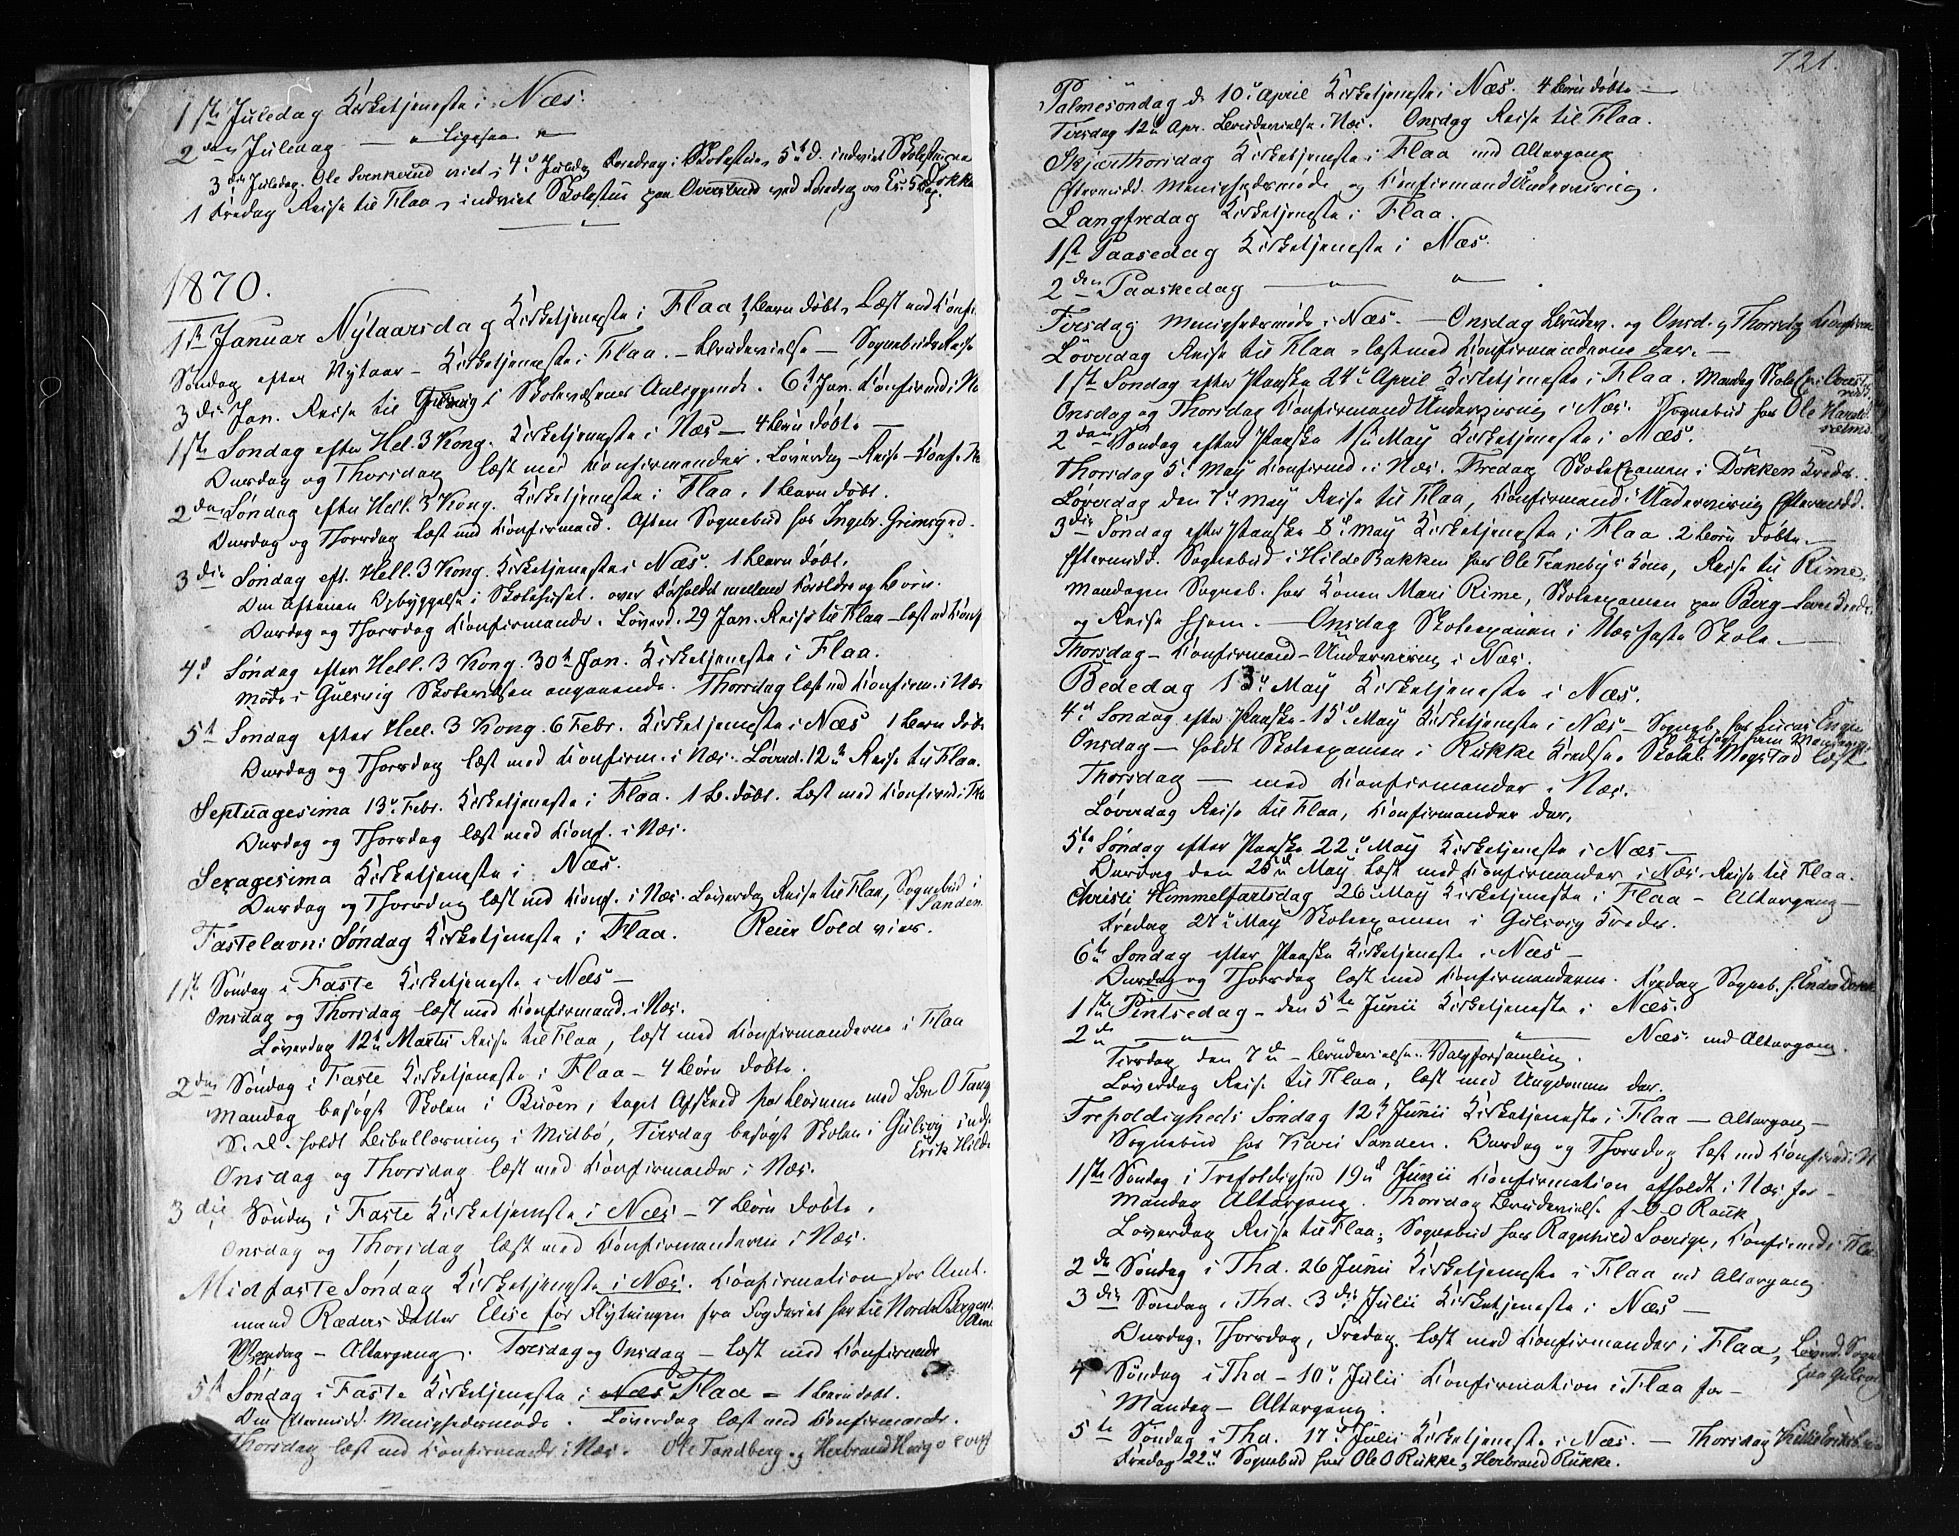 1ste Juledag Kirketjeneste i Næs.
2den Juledag — " ligesaa "
3die Juledag. Ole Svenkerud viet, 4de Juledag Foredrag i Skolestuen 5te d. indviet Skolestuen
1 Fredag Reise til Flaa, indviet Skolestue paa Aavestrud ved Foredrag
1870.
1ste Januar Nytaarsdag Kirketjeneste i Flaa 1 Barn døbt, Læst med Konfir.
Søndag efter Nytaar – Kirketjeneste i Flaa. – Brudevielse – Sognebuds Reise
3die Jan. Reise til Gulsvig i Skolevæsenets Anliggende. 6te Jan. Konfirmd. i Næs
1ste Søndag efter Hel. 3 Kong. Kirketjeneste i Næs – 4 Børn døbte –
Onsdag og Thorsdag læst med Konfirmander. Løverdag – Reise – Konf.
2den Søndag efter Hell. 3 Kong. Kirketjeneste i Flaa. 1 Barn døbt.
Onsdag og Thorsdag læst med Konfirmand. Aften Sognebud hos Ingebr. Grimsgrd.
3die Søndag eft. Hell. 3 Kong. Kirketjeneste i Næs. 1 Barn døbt.
Om Aftenen Opbyggelse i Skolehuset. over Forholdet mellem Forældre og Børn.
Onsdag og Thorsdag Konfirmande. Løverd. 29 Jan. Reise til Flaa – læst md Konf
4de Søndag efter Hell. 3 Kong. 30te Jan. Kirketjeneste i Flaa.
Møde i Gulsvig Skolevæsen angaaende. Thorsdag læst md Konfirm. i Næs
5te Søndag efter Hell. 3 Kong. 6 Febr. Kirketjeneste i Næs 1 Barn døbt
Onsdag og Thorsdag læst med Konfirm. i Næs. Løverd. 12te Reise til Flaa.
Septuagesima 13de Febr. Kirketjeneste i Flaa. 1 B. døbt. Læst med Konfirmd. i Flaa
Onsdag og Thorsdag læst med Konf. i Næs.
Sexagesima Kirketjeneste i Næs.
Onsdag og Thorsdag læst md Konf. i Næs. Løverdag Reise til Flaa, Sognebud i
Sanden
Fastelavns Søndag Kirketjeneste i Flaa. Reier Vold viet.
1ste Søndag i Faste Kirketjeneste i Næs –
Onsdag og Thorsdag læst med Konfirmand. i Næs.
Løverdag 12te Martii Reise til Flaa, læst med Konfirmanderne i Flaa
2den Søndag i Faste Kirketjeneste i Flaa – 4 Børn døbte.
Mandag besøgt Skolen i Buøen, taget Afsked hos Børnene med Lær. O Tang
S. D. holdt Bibellæsning i Midbø, Tirsdag besøgt Skolen i Gulsvig
Erik Hilde
Onsdag og Thorsdag læst med Konfirmander i Næs.
3die Søndag i Faste Kirketjeneste i Næs – 7 Børn døbte.
Onsdag og Thorsdag læst med Konfirmanderne i Næs.
Midfaste Søndag Kirketjeneste i Næs. Konfirmation for Amt.
mand Ræders datter Elise før Flytningen fra Fogderiet her til Nordre Bergenh.
Amt
Mandag – Altergang. Tirsdag og Onsdag – læst med Konfirmande
5te Søndag i Faste Kirketjeneste i Næs Flaa – 1 Barn døbt.
Om Eftermidd. Menighedsmøde. Løverdag læst med Konfirmande.
Thorsdag læst md Konfirmande i Næs. Ole Tandberg og Herbrand
721.
Palmesøndag d. 10de April Kirketjeneste i Næs. 4 Børn døbte –
Tirsdag 12te Apr. Brudevielse i Næs. Onsdag Reise til Flaa.
Skjærthorsdag Kirketjeneste i Flaa md Altergang
Eftermidd. Menighedsmøde og Konfirmand Undervisning.
Langfredag Kirketjeneste i Flaa.
1ste Paasedag Kirketjeneste i Næs.
2den Paaskedag — " — "
Tirsdag Menighedsmøde i Næs. – Onsdag Brudev. og Onsd. og Thorsdg Konfirm
Løverdag Reise til Flaa læst med Konfirmanderne der. –
1ste Søndag efter Paaske 24de April Kirketjeneste i Flaa. Mandag Skole Ex. i Aavest
rud
Onsdag og Thorsdag Konfirmand Undervisning i Næs. Sognebud hos Ole Harald
2den Søndag efter Paaske 1ste May Kirketjeneste i Næs.
Thorsdag 5te May Konfirmd. i Næs. Fredag Skole Examen i Dokken Kreds.
Løverdag den 7de May Reise til Flaa, Konfirmand Undervisning Eftermidd.
3die Søndag efter Paaske 8de May Kirketjeneste i Flaa. 2 Børn døbte –
Eftermidd. Sognebud i Hilde Bakken hos Ole Traneby's Kone, Reise til Rime.
Mandagen Sogneb. hos Konen Mari Rime, Skoleexamen paa Berg
og Reise Hjem. – Onsdag Skoleexamen i Næs faste Skole. –
Thorsdag – Konfirmand-Undervisning i Næs.
Bededag 13de May Kirketjeneste i Næs.
4de Søndag efter Paaske – 15de May Kirketjeneste i Næs – Sogneb. hos Lucas Engen
Onsdag – holdt Skoleexamen i Rukke Kreds. Skolel. Mogstad læst
Thorsdag – med Konfirmander i Næs.
Løverdag Reise til Flaa, Konfirmander der.
5te Søndag efter Paaske 22de May Kirketjeneste i Næs –
Onsdag den 25de May læst med Konfirmander i Næs. Reise til Flaa.
Christi Himmelfartsdag 26de May Kirketjeneste i Flaa – Altergang –
Fredag 27de May Skoleexamen i Gulsvig Kreds.
6te Søndag efter Paaske Kirketjeneste i Næs –
Onsdag og Thorsdag læst med Konfirmanderne. Fredag Sogneb. h. Endre Dokk
1ste Pintsedag – den 5te Junii Kirketjeneste i Næs.
2den — " — " — Næs md Altergang.
Tirsdag den 7de – Brudevielse. Valgforsamling.
Løverdag Reise til Flaa, læst med Ungdommen der.
Trefoldigheds Søndag 12te Junii Kirketjeneste i Flaa – Altergang –
Sognebud hos Kari Sanden. Onsdag og Thorsdag læst md Konfirmd. i N.
1ste Søndag i Trefoldighed 19de Junii Konfirmation afholdt i Næs for –
Mandag Altergang. Thorsdag Brudevielse f. O O Rauk
Løverdag Reise til Flaa, Sognebud hos Ragnhild Sverige, Konfirmd. i Flaa
2den Søndag i Thd. 26 Junii Kirketjeneste i Flaa md Altergang
3die Søndag i Thd. 3die Julii Kirketjeneste i Næs –
Onsdag, Thorsdag, Fredag læst med Konfirmander i Flaa, Løverd. Sogn
paa Gulsvig
4 Søndag i Thd – 10de Julii Konfirmation i Flaa for –
Mandag – Altergang.
5te Søndag i Thd. 17de Julii Kirketjeneste i Næs. – Thorsdag
Fredag 22de Sognebud hos Ole O Rukke, Herbrand Rukke.